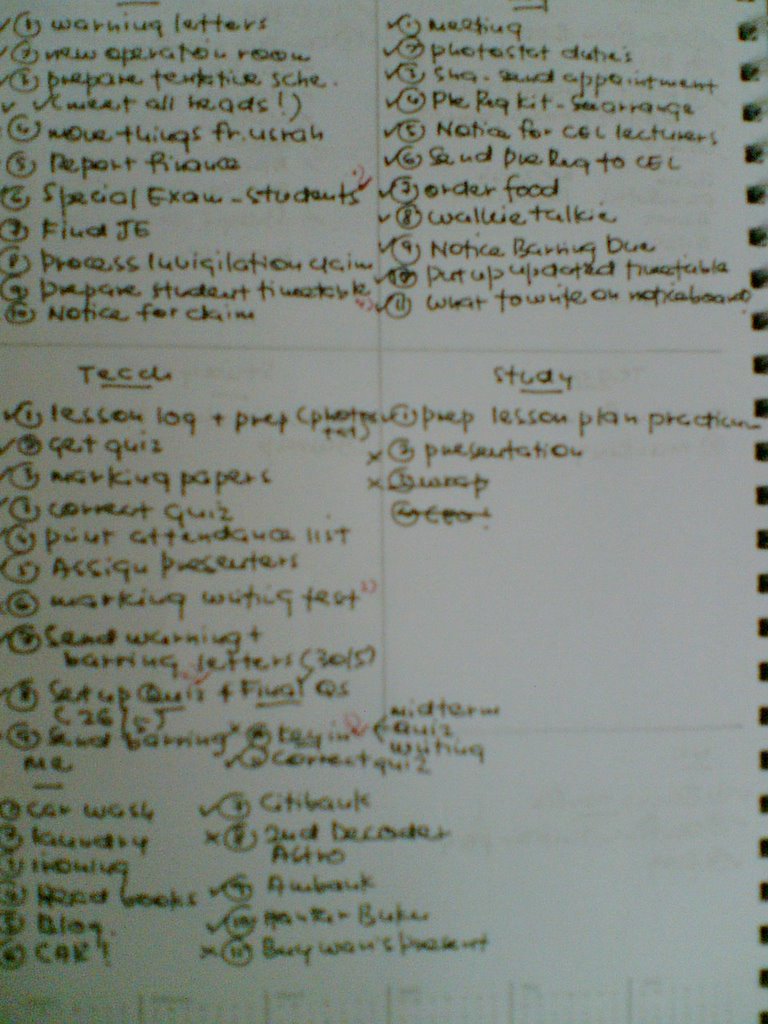 ① warning letters
② new operation room
③ prepare tentative sche.
(meet all heads!)
④ move things fr. usrah
⑤ Report finance
⑥ Special Exam - students
⑦ Find JE
⑧ process invigilation claim
⑨ prepare student timetable
⑩ Notice for claim
① meeting
② photostat duties
③ sha. send appointment
④ Pre Req kit - rearrange
⑤ Notice for CEL lecturers
⑥ Send Pre Req to CEL
⑦ order food
⑧ walkie talkie
⑨ Notice Barring Due
⑩ put up updated timetable
⑪ what to write on noticeboard
Teach
① lesson log + prep (photos
tat)
② get quiz
③ marking papers
③ correct quiz
④ print attendance list
⑤ Assign presenters
⑥ marking writing test
⑦ Send warning +
barring letters (30/5)
⑧ Set up Quiz + Final Qs
(26/5)
⑨ Send barring
⑩ key in
midterm
quiz
writing
correct quiz
Study
① prep lesson plan practicum
② presentation
③ wrap
④ CEO!
Me
① car wash
② laundry
③ ironing
④ Read books
⑤ Blog.
⑥ CAR!
⑦ Citibank
⑧ 2nd Decoder
Astro
⑨ Ambank
⑩ Hantar Buku
⑪ Buy wan's present